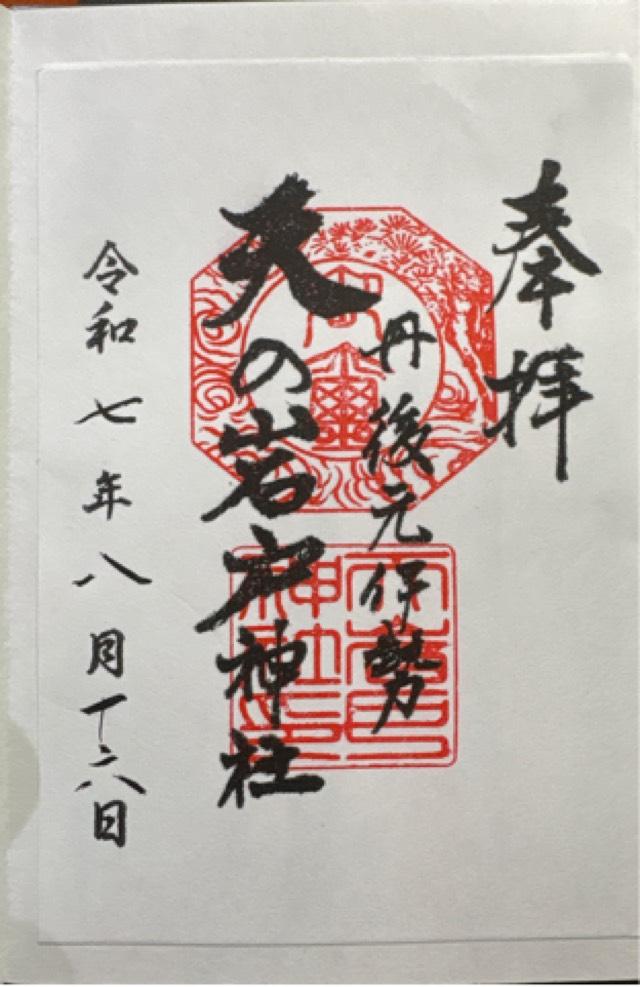 奉拝
丹後元伊勢
天の岩戸神社
令和七年八月十六日